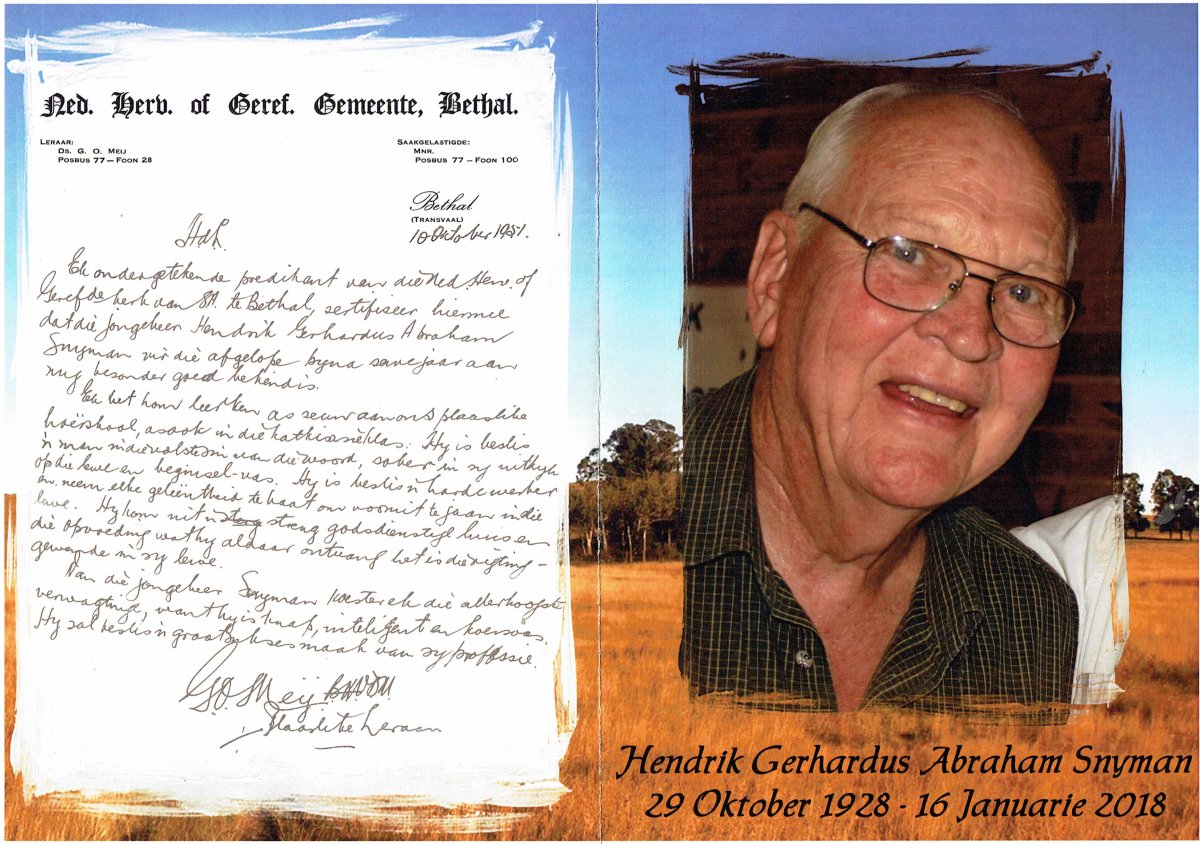 Ned. Herv. of Geref. Gemeente, Bethal.
LERAAR:
DS. G. O. MEIJ
POSBUS 77 — FOON 28
SAAKGELASTIGDE:
MNR.
POSBUS 77 — FOON 100
Bethal
(TRANSVAAL)
10 Oktober 1951.
Ek ondergetekende predikant van die Ned. Herv. of
Gerefde kerk van S.A. te Bethal, sertifiseer hiermee
dat die jongeheer Hendrik Gerhardus Abraham
Snyman vir die afgelope byna sewe jaar aan
my besonder goed bekend is.
Ek het hom leer ken as seun aan ons plaaslike
hoërskool, asook in die katkisasieklas. Hy is beslis
'n man in die volste sin van die woord, sober in sy uitkyk
op die lewe en beginsel-vas. Hy is beslis 'n harde werker
en neem elke geleëntheid te baat om vooruit te gaan in die
lewe. Hy kom uit 'n streng godsdienstige huis en
die opvoeding wat hy aldaar ontvang het is die rigting-
gewende in sy lewe.
Van die jongeheer Snyman koester ek die allerhoogste
verwagting, want hy is knap, inteligent en koersvas.
Hy sal beslis 'n groot sukses maak van sy professie.
G.O. Meij
Plaaslike Leraar
Hendrik Gerhardus Abraham Snyman
29 Oktober 1928 - 16 Januarie 2018